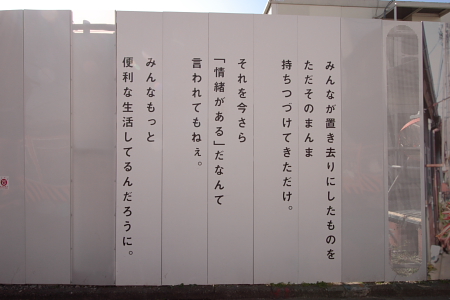 みんなが置き去りにしたものを
ただそのまんま
持ちつづけてきただけ。
それを今さら
「情緒がある」だなんて
言われてもねぇ。
みんなもっと
便利な生活してるんだろうに。